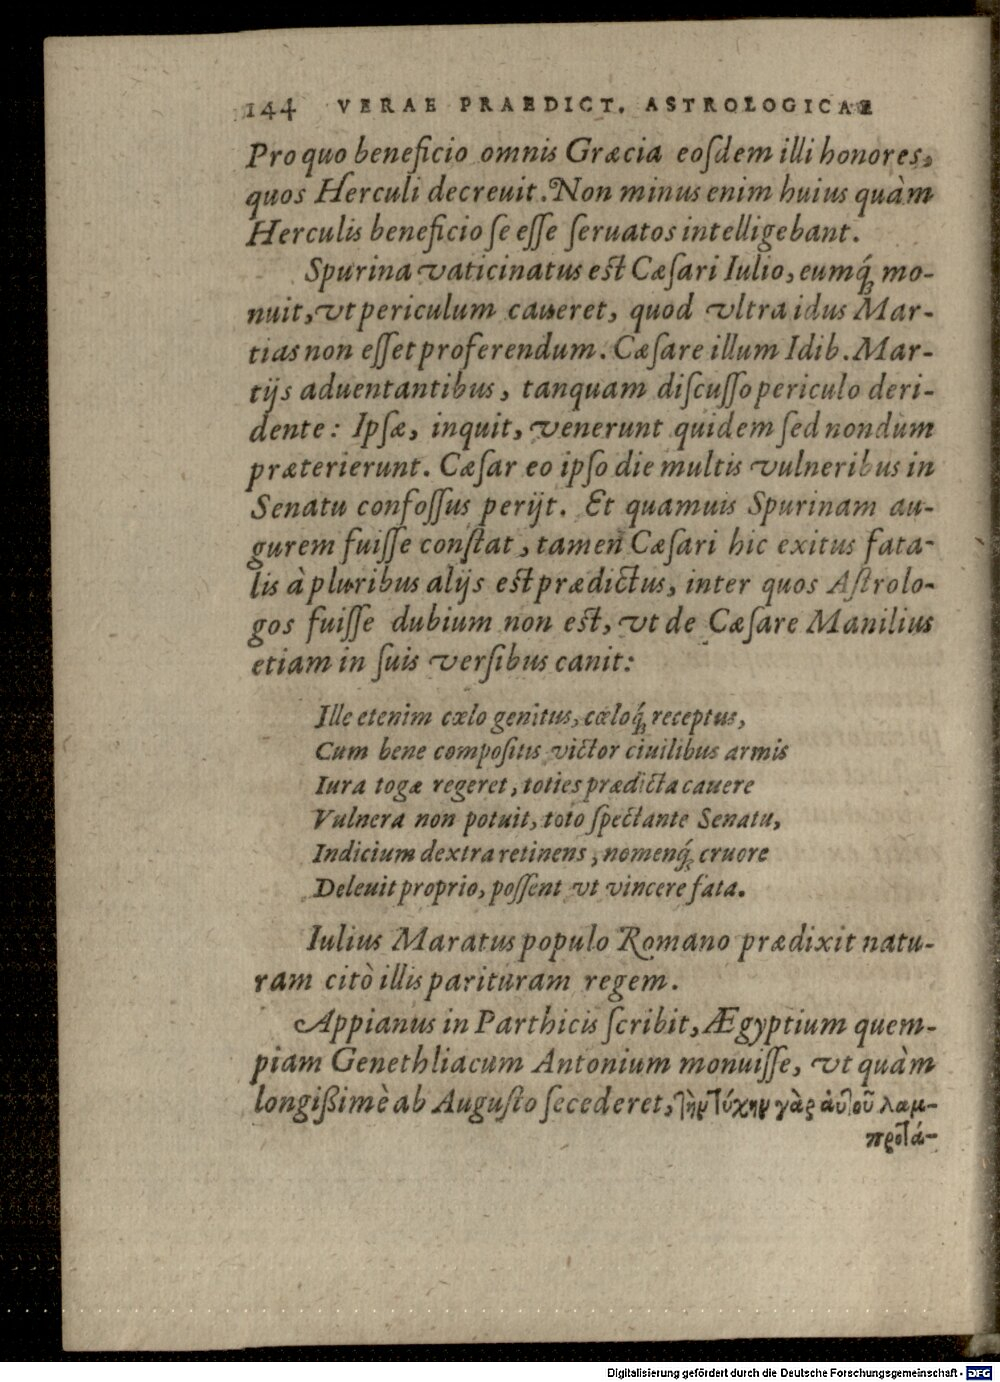 144 VERAE PRAEDICT. ASTROLOGICAE
Pro quo beneficio omnis Græcia eoſdem illi honores,
quos Herculi decreuit. Non minus enim huius quàm
Herculis beneficio ſe eſſe ſeruatos intelligebant.
Spurina vaticinatus eſt Cæſari Iulio, eumq́; mo-
nuit, vt periculum caueret, quod vltra idus Mar-
tias non eſſet proferendum. Cæſare illum Idib. Mar-
tijs aduentantibus, tanquam diſcuſſo periculo deri-
dente: Ipſæ, inquit, venerunt quidem ſed nondum
præterierunt. Cæſar eo ipſo die multis vulneribus in
Senatu confoſſus perijt. Et quamuis Spurinam au-
gurem fuiſſe conſtat, tamen Cæſari hic exitus fata-
lis à pluribus alijs eſt prædictus, inter quos Aſtrolo-
gos fuiſſe dubium non eſt, vt de Cæſare Manilius
etiam in ſuis verſibus canit:
Ille etenim cælo genitus, cæloq́; receptus,
Cum bene compoſitis victor ciuilibus armis
Iura togæ regeret, toties prædicta cauere
Vulnera non potuit, toto ſpectante Senatu,
Indicium dextra retinens, nomenq́; cruore
Deleuit proprio, poſſent vt vincere fata.
Iulius Maratus populo Romano prædixit natu-
ram citò illis parituram regem.
Appianus in Parthicis ſcribit, Ægyptium quem-
piam Genethliacum Antonium monuiſſe, vt quàm
longißimè ab Auguſto ſecederet, τὴν τύχην γὰρ ἀυτοῦ λαμ-
προτά-
Digitalisierung gefördert durch die Deutsche Forschungsgemeinschaft - DFG